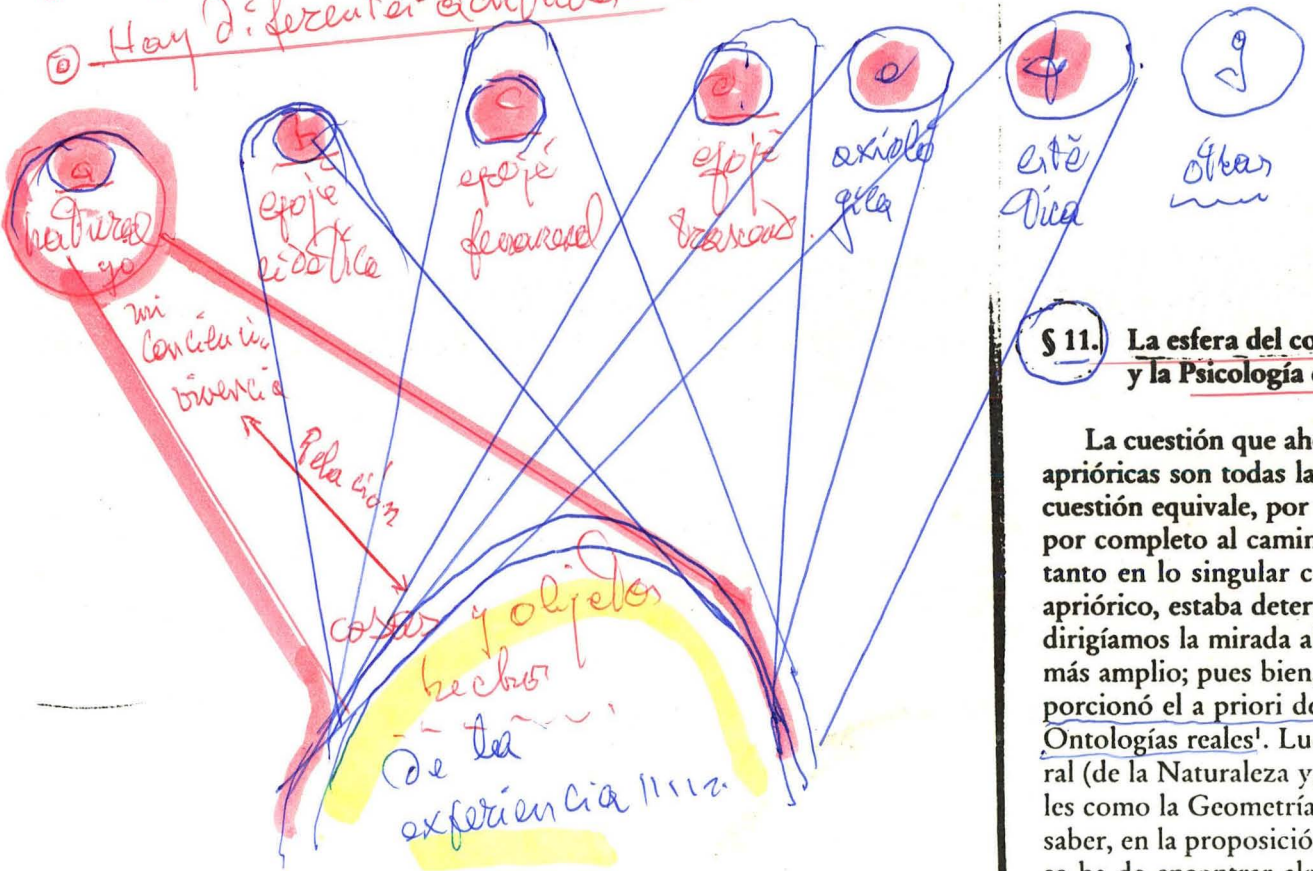 ⓪ Hay diferentes
a
natural
yo
b
epojé
eidética
c
epojé
fenomenol
d
epojé
trascend.
e
axioló
gica
f
esté
tica
g
otras
mi
conciencia
vivencia
Relación
cosas y objetos
hechos
de la
experiencia
§ 11. La esfera del co
y la Psicología
La cuestión que ah
aprióricas son todas la
cuestión equivale, por
por completo al camin
tanto en lo singular c
apriórico, estaba deter
dirigíamos la mirada a
más amplio; pues bien
porcionó el a priori de
Ontologías reales¹. Lu
ral (de la Naturaleza y
les como la Geometría
saber, en la proposició